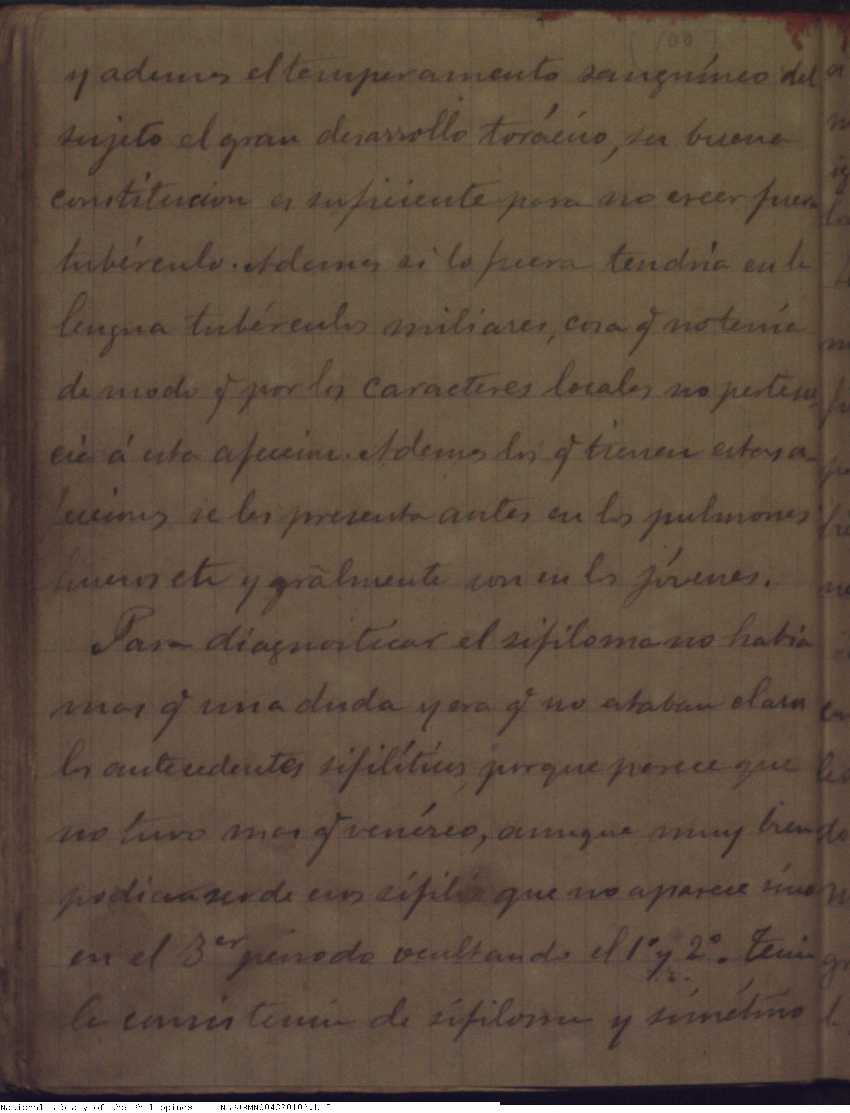 (100)
y ademas el temperamento sanguíneo del
sujeto el gran desarrollo torácico, su buena
constitucion es suficiente para no creer fuera
tubérculo. Ademas si lo fuera tendría en la
lengua tubérculos miliares, cosa q̃ no tenía
de modo q̃ por los caracteres locales no pertene-
cia á esta afeccion. Ademas los q̃ tienen estas a-
fecciones se les presenta antes en los pulmones
huesos etc y grālmente son en los jóvenes.
Para diagnosticar el sifiloma no habia
mas q̃ una duda y era q̃ no estaban claros
los antecedentes sifilíticos, porque parece que
no tuvo mas q̃ venéreo, aunque muy bien
podia ser de esos sífilis que no aparece sino
en el 3er período ocultando el 1º y 2º. Tenia
la consistencia de sifiloma y
National Library of the Philippines